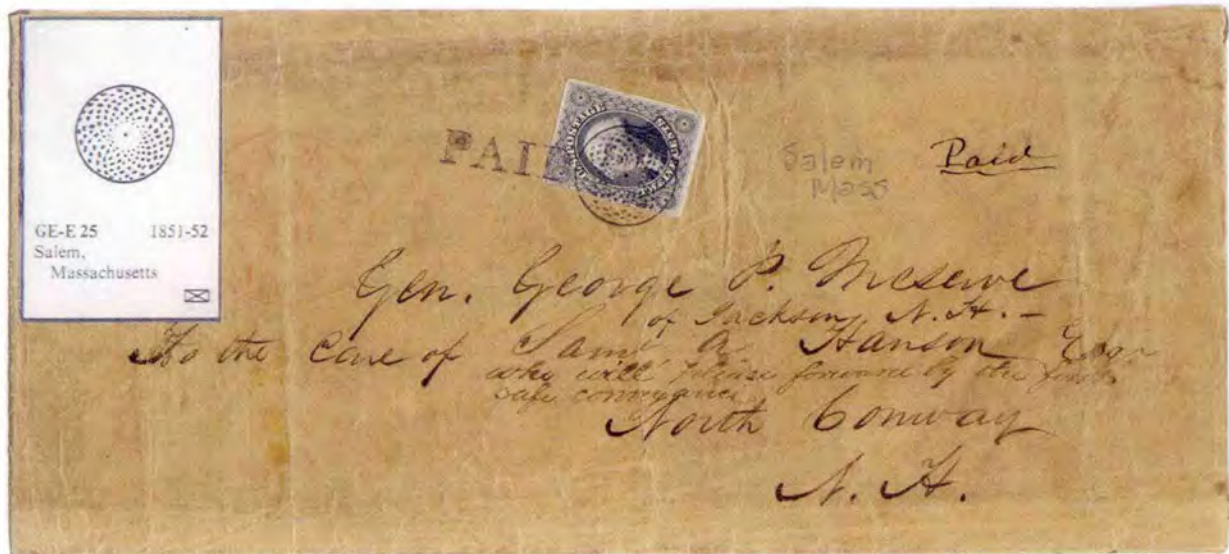 GE-E 25 1851-52
Salem,
Massachusetts
PAID
POSTAGE
Salem
Mass
Paid
Gen. George P. Meserve
of Jackson, N. H. –
To the care of Saml. A. Hanson, Esqr
who will please forward by the first
safe conveyance
North Conway
N. H.